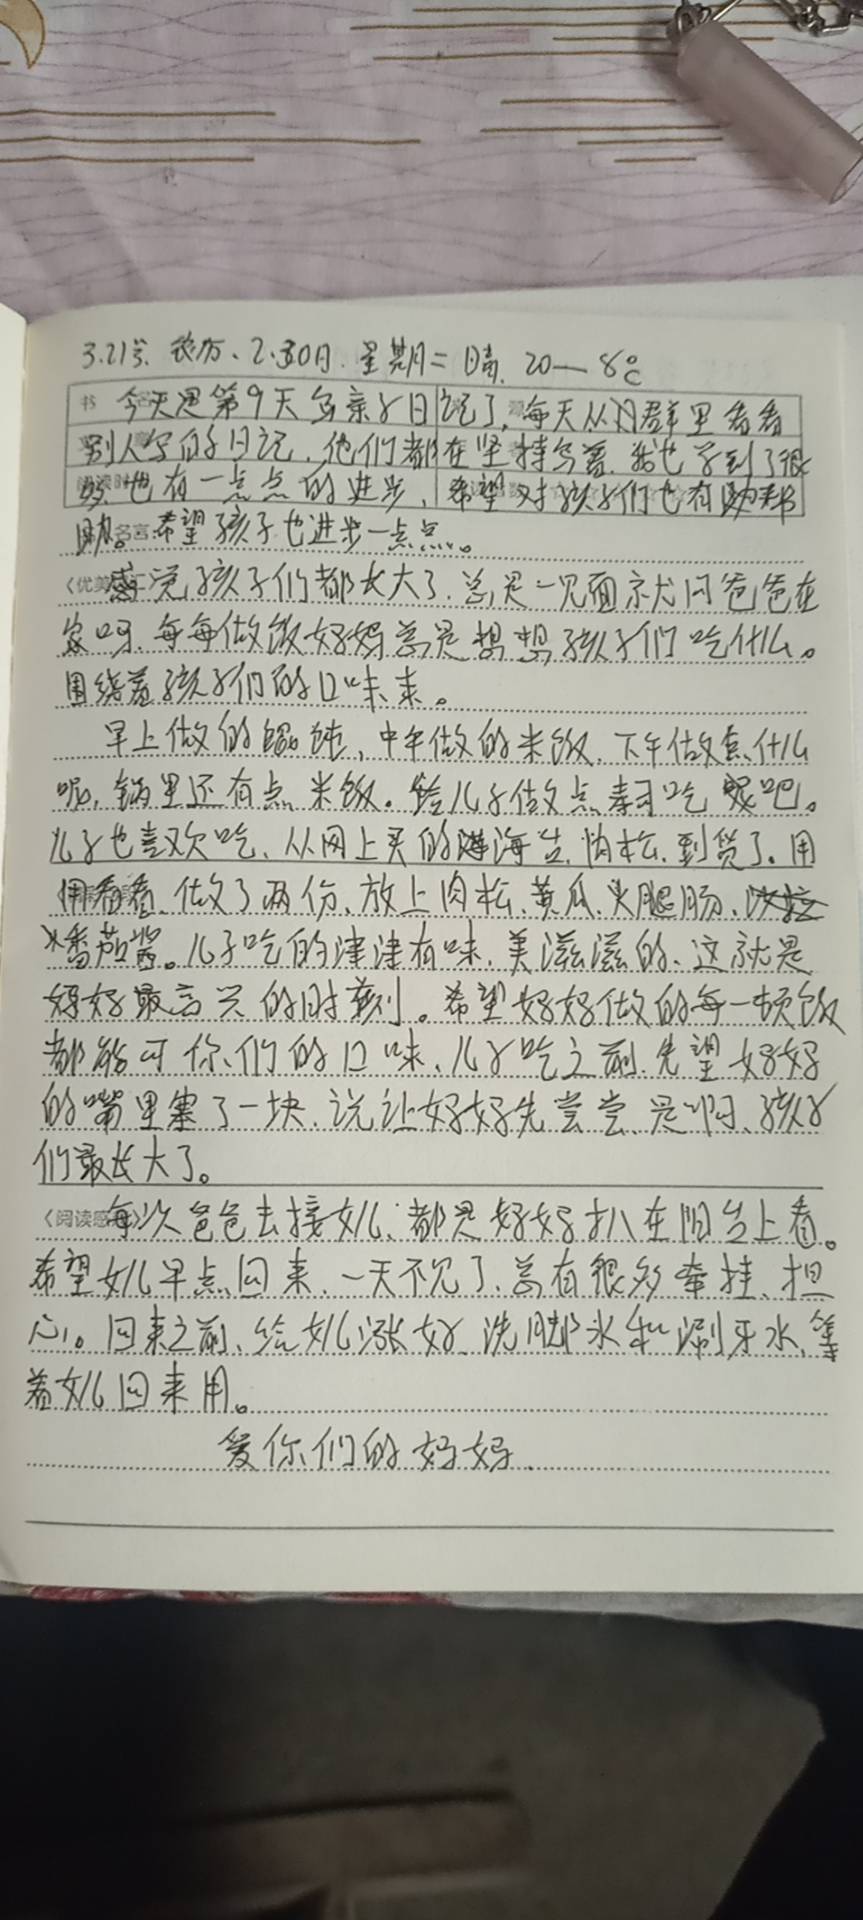 3.21号、农历、2.30日. 星期二 晴. 20—8℃
今天是第9天写亲子日记了,每天从群里看看
别人写的日记.他们都在坚持写着.我也学到了很
多.也有一点点的进步,希望对孩子们也有
助。希望孩子也进步一点点。
感觉孩子们都长大了.总是一见面就问爸爸在
家吗.每每做饭妈妈总是想想孩子们吃什么。
围绕着孩子们的口味来。
早上做的馄饨,中午做的米饭.下午做点什么
呢,锅里还有点米饭。给儿子做点寿司吃呢吧。
儿子也喜欢吃、从网上买的海苔,肉松.到货了。用
用看看.做了两份、放上肉松、黄瓜、火腿肠、
番茄酱。儿子吃的津津有味,美滋滋的、这就是
妈妈最高兴的时刻。希望妈妈做的每一顿饭
都能可你们的口味、儿子吃之前.先望妈妈
的嘴里塞了一块.说让妈妈先尝尝、是啊、孩子
们最长大了。
每次爸爸去接女儿、都是妈妈扒在阳台上看。
希望女儿早点回来.一天不见了.总有很多牵挂、担
心。回来之前、给女儿涨好、洗脚水和涮牙水、等
着女儿回来用。
爱你们的妈妈.